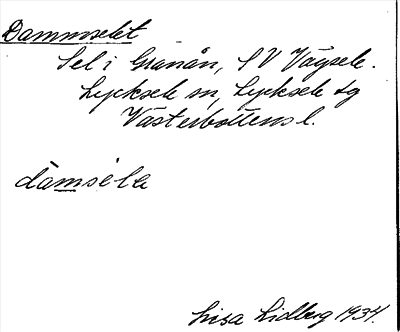 Dammselet
Sel i Granån, SV Vägsele.
Lycksele sn, Lycksele lg
Västerbottens l.
dàmsèle
Lisa Lidberg 1934.